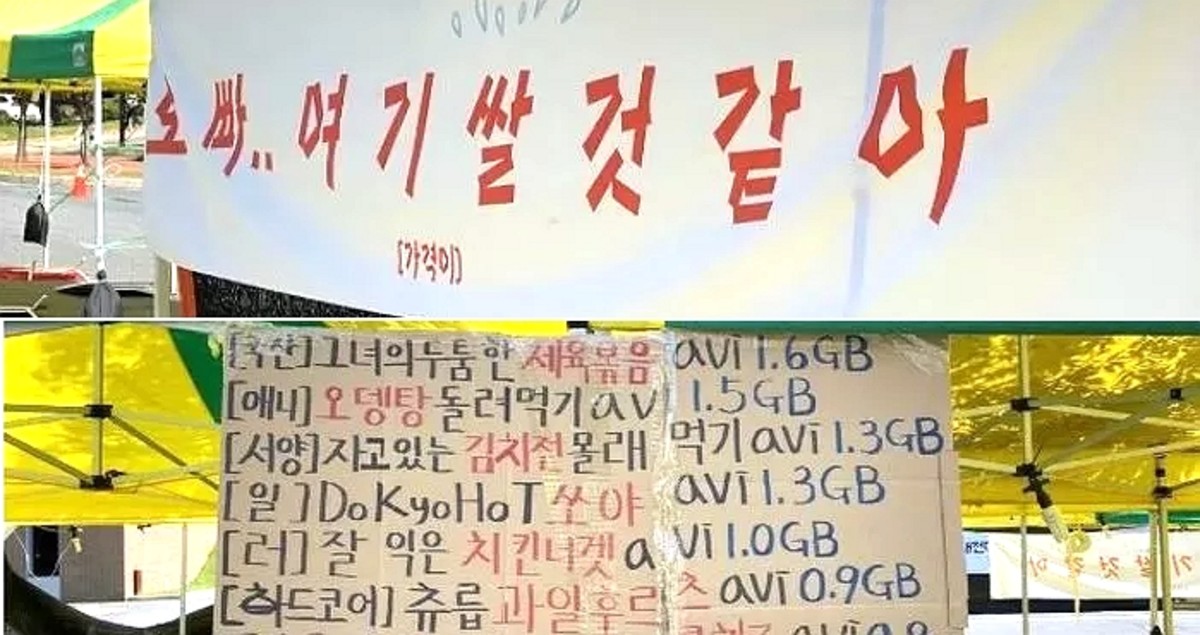 오빠.. 여기 쌀 것 같아
[가격이]
[국산]그녀의 두툼한 제육볶음 avi 1.6GB
[애니]오뎅탕 돌려먹기 avi 1.5GB
[서양]자고있는 김치전 몰래 먹기 avi 1.3GB
[일]DoKyoHoT 쏘야 avi 1.3GB
[러]잘 익은 치킨너겟 avi 1.0GB
[하드코어]츄릅 과일후르츠 avi 0.9GB